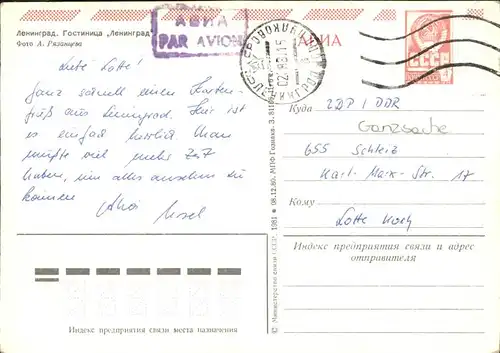 Ленинград. Гостиница „Ленинград"
Фото А. Рязанцева
АВИА
PAR AVION
АВИА
СССР
Liebe Lotte!
Ganz schnell einen Karten-
gruß aus Leningrad. Hier ist
es einfach herrlich. Man
müßte viel mehr Zeit
haben, um alles ansehen zu
können
Куда
ZDP / DDR
Ganzsache
655 Schleiz
Karl-Marx-Str. 17
Кому
Lotte Koch
Индекс предприятия связи и адрес
отправителя
Индекс предприятия связи места назначения
© Министерство связи СССР. 1981